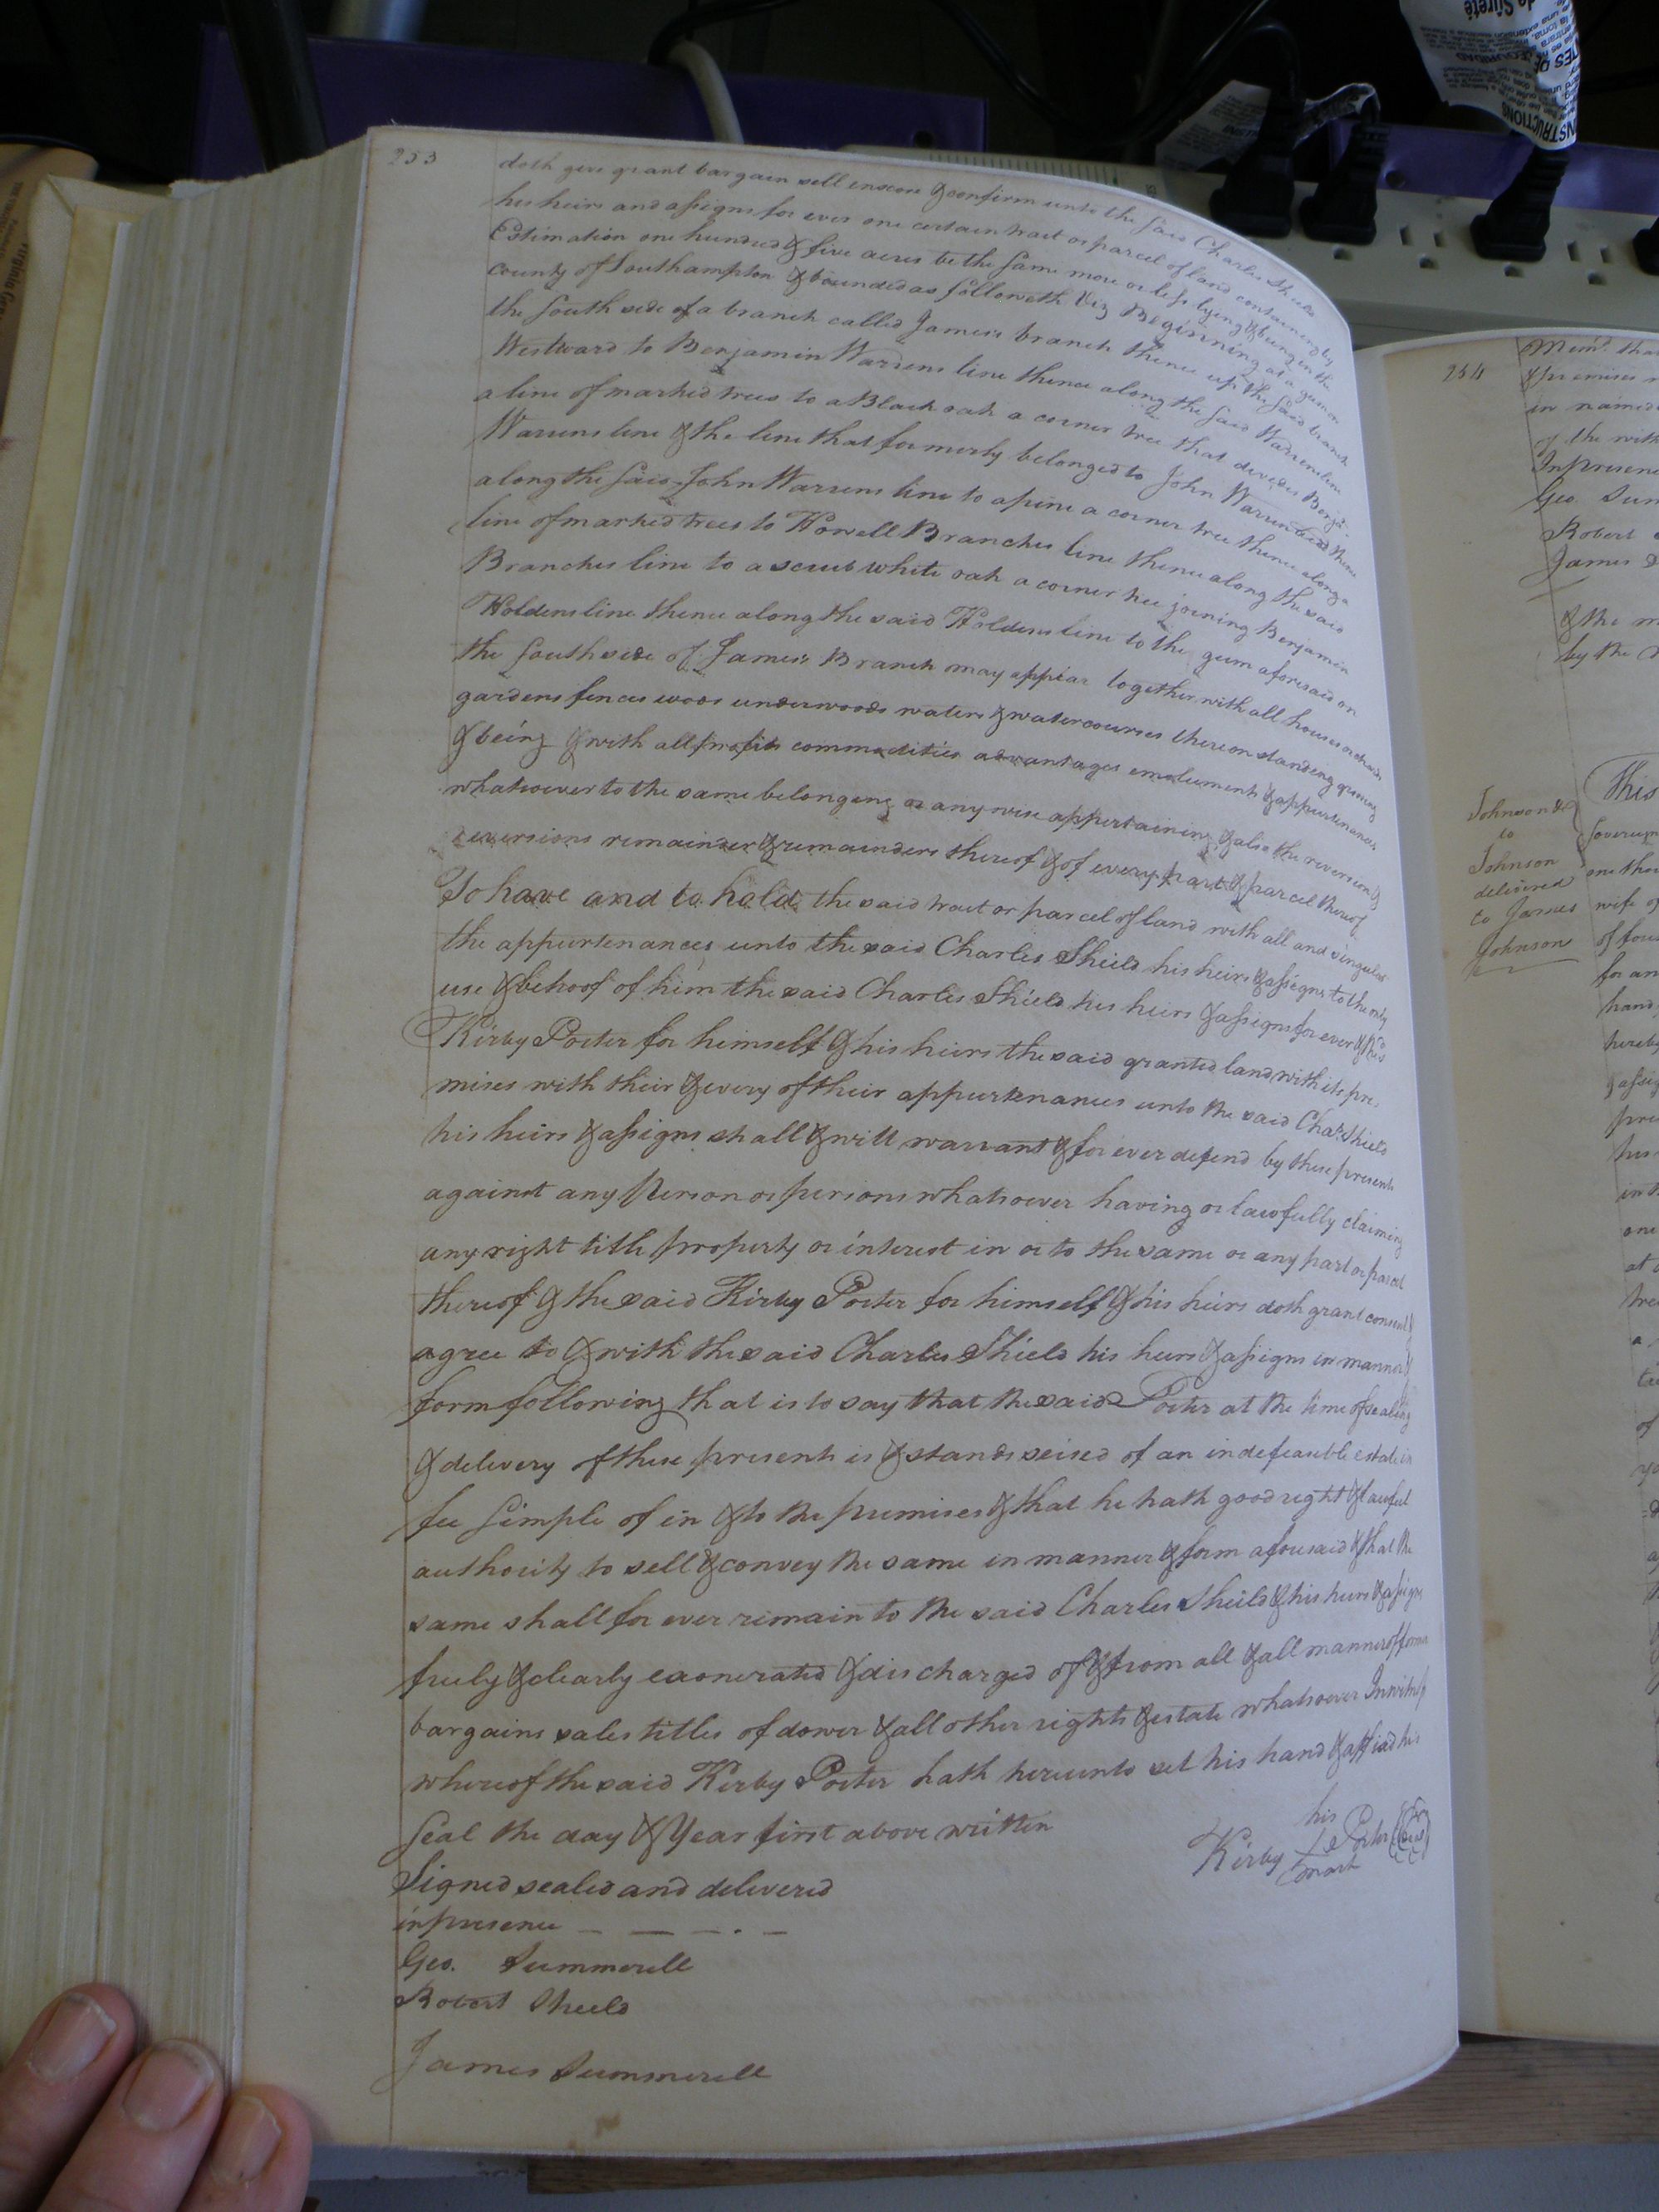 253
doth give grant bargain sell enscore & confirm unto the said Charles Shield
his heirs and assigns for ever one certain tract or parcel of land containing by
Estimation one hundred & five acres be the same more or less lying & being in the
county of Southampton & bounded as followeth Viz Beginning at a gum on
the South side of a branch called James's branch thence up the said branch
Westward to Benjamin Warrens line thence along the said Warrens line
a line of marked trees to a Black oak a corner tree that devides Benja.
Warrens line & the line that formerly belonged to John Warren thence
along the said John Warrens line to a pine a corner tree thence along a
line of marked trees to Howell Branches line thence along the said
Branches line to a scrub white oak a corner tree joining Benjamin
Holdens line thence along the said Holdens line to the gum aforesaid on
the South side of James's Branch may appear together with all houses orchards
gardens fences woods underwoods waters & watercourses thereon standing growing
& being & with all profits commodities advantages emolument & appurtenances
whatsoever to the same belonging or any wise appertaining & also the reversion &
reversions remainder & remainders thereof & of every part & parcel thereof
To have and to hold the said tract or parcel of land with all and singular
the appurtenances unto the said Charles Shield his heirs & assigns to the only
use & behoof of him the said Charles Shield his heirs & assigns for ever & the sd
Kirby Porter for himself & his heirs the said granted land with its pre
mises with their & every of their appurtenances unto the said Chas. Shield
his heirs & assigns shall & will warrant & for ever defend by these presents
against any Person or persons whatsoever having or lawfully claiming
any right title property or interest in or to the same or any part or parcel
thereof & the said Kirby Porter for himself & his heirs doth grant consent &
agree to & with the said Charles Shield his heirs & assigns in manner &
form following that is to say that the said Porter at the time of sealing
& delivery of these presents is & stands seised of an indefeasible estate in
fee Simple of in & to the premises & that he hath good right & lawful
authority to sell & convey the same in manner & form aforesaid & that the
same shall for ever remain to the said Charles Shield & his heirs & assigns
freely & clearly exonerated & discharged of & from all & all manner of former
bargains sales titles of dower & all other rights & estate whatsoever In witness
whereof the said Kirby Porter hath hereunto set his hand & affixd his
Seal the day & Year first above written
his
Kirby Porter Seal
mark
Signed sealed and delivered
in presence
Geo. Summerell
Robert Shield
James Summerell
254
Memd. that
& premises
in named
of the with
In presence
Geo. Sum
Robert
James
& the m
by the
Johnson &
to
Johnson
delivered
to James
Johnson
This
one thou
wife of
of fou
for an
hand
hereby
& assig
pre
his
in
one
at
tre
a
of